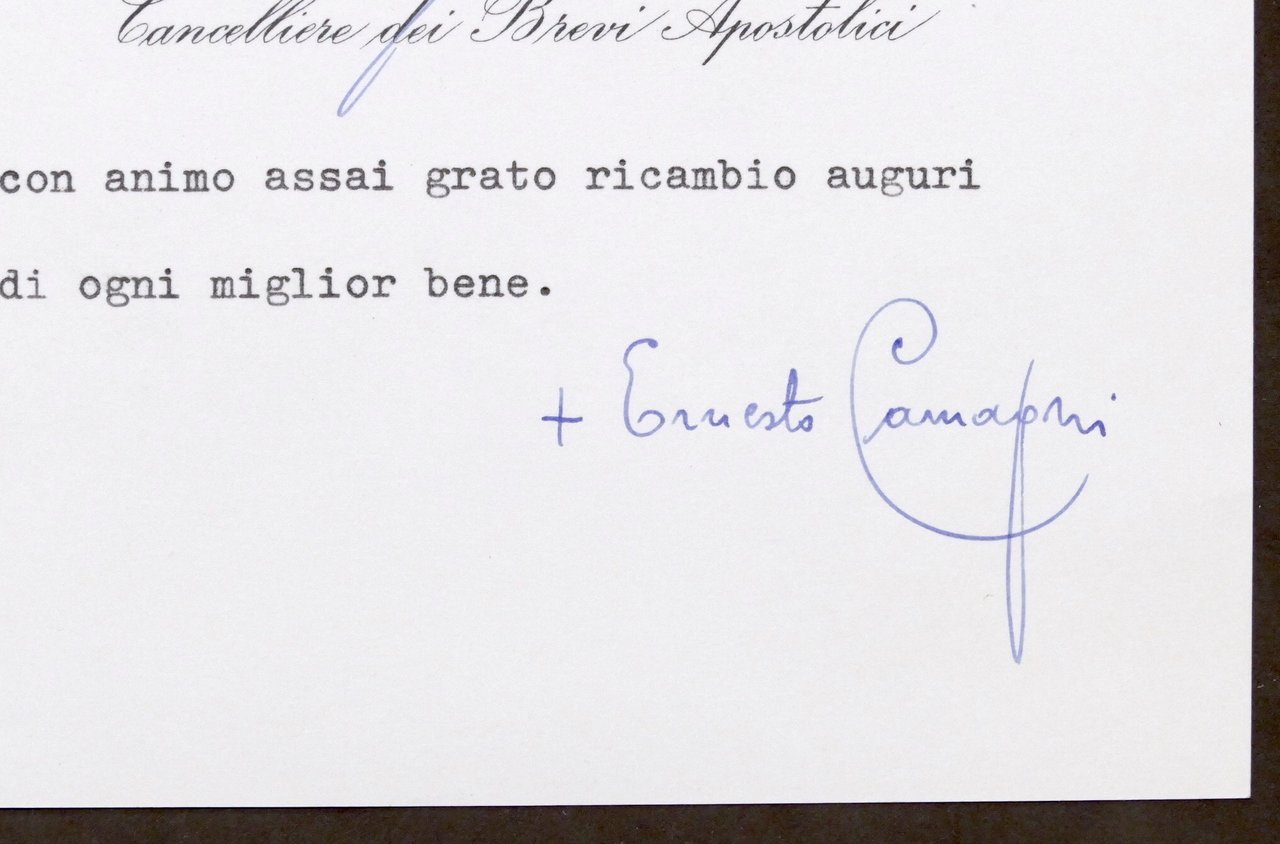 Cancelliere dei Brevi Apostolici
con animo assai grato ricambio auguri
di ogni miglior bene.
+ Ernesto Camagni